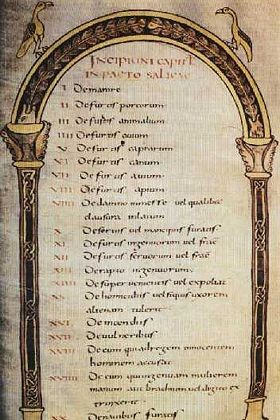 INCIPIUNT CAPITL
IN PACTO SALICAE
I Demanire
II Defurtis porcorum
III Defurtis animalium
IIII Defurtis ouium
V Defurtis caprarum
VI Defurtis canum
VII Defurtis auium
VIII Defurtis apium
VIIII Dedamno inmesse uel qualibet
clausura inlatum
X Deseruis uel mancipiis furatis
XI Defurtis ingenuorum uel frac
XII Defurtis seruorum uel frac
XIII Derapto ingenuorum
XIIII Desuper uenientis uel expoliat
XV Dehomicidiis uel siquis uxorem
alienam tulerit
XVI Deincendiis
XVII Deuulneribus
XVIII De eum quiadregem innocentem
hominem accusat
De eum quiingenuam mulierem
manum aut brachium uel digito ex
trinxerit
Denauibus furatis